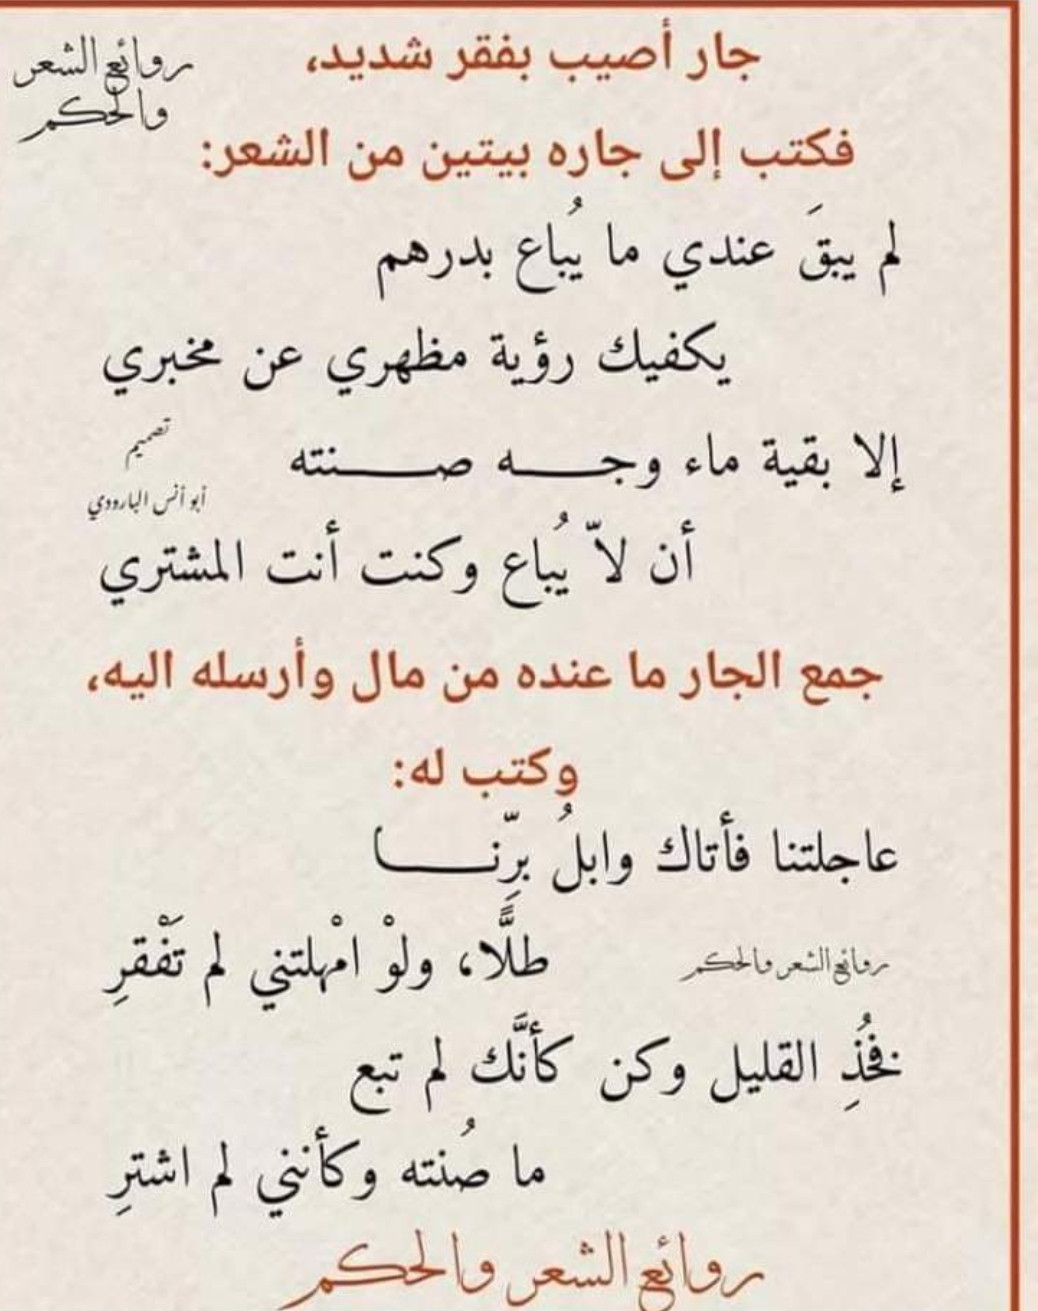 روائع الشعر
والحكم
جار أصيب بفقر شديد،
فكتب إلى جاره بيتين من الشعر:
لم يبقَ عندي ما يُباع بدرهم
يكفيك رؤية مظهري عن مخبري
إلا بقية ماء وجـــه صـــنته
تصميم
أبو أنس البارودي
أن لاّ يُباع وكنت أنت المشتري
جمع الجار ما عنده من مال وأرسله اليه،
وكتب له:
عاجلتنا فأتاك وابلُ برِّنـــا
طلًّا، ولوْ امْهلتني لم تَفْقرِ
روائع الشعر والحكم
فخُذِ القليل وكن كأنَّك لم تبع
ما صُنته وكأنني لم اشترِ
روائع الشعر والحكم